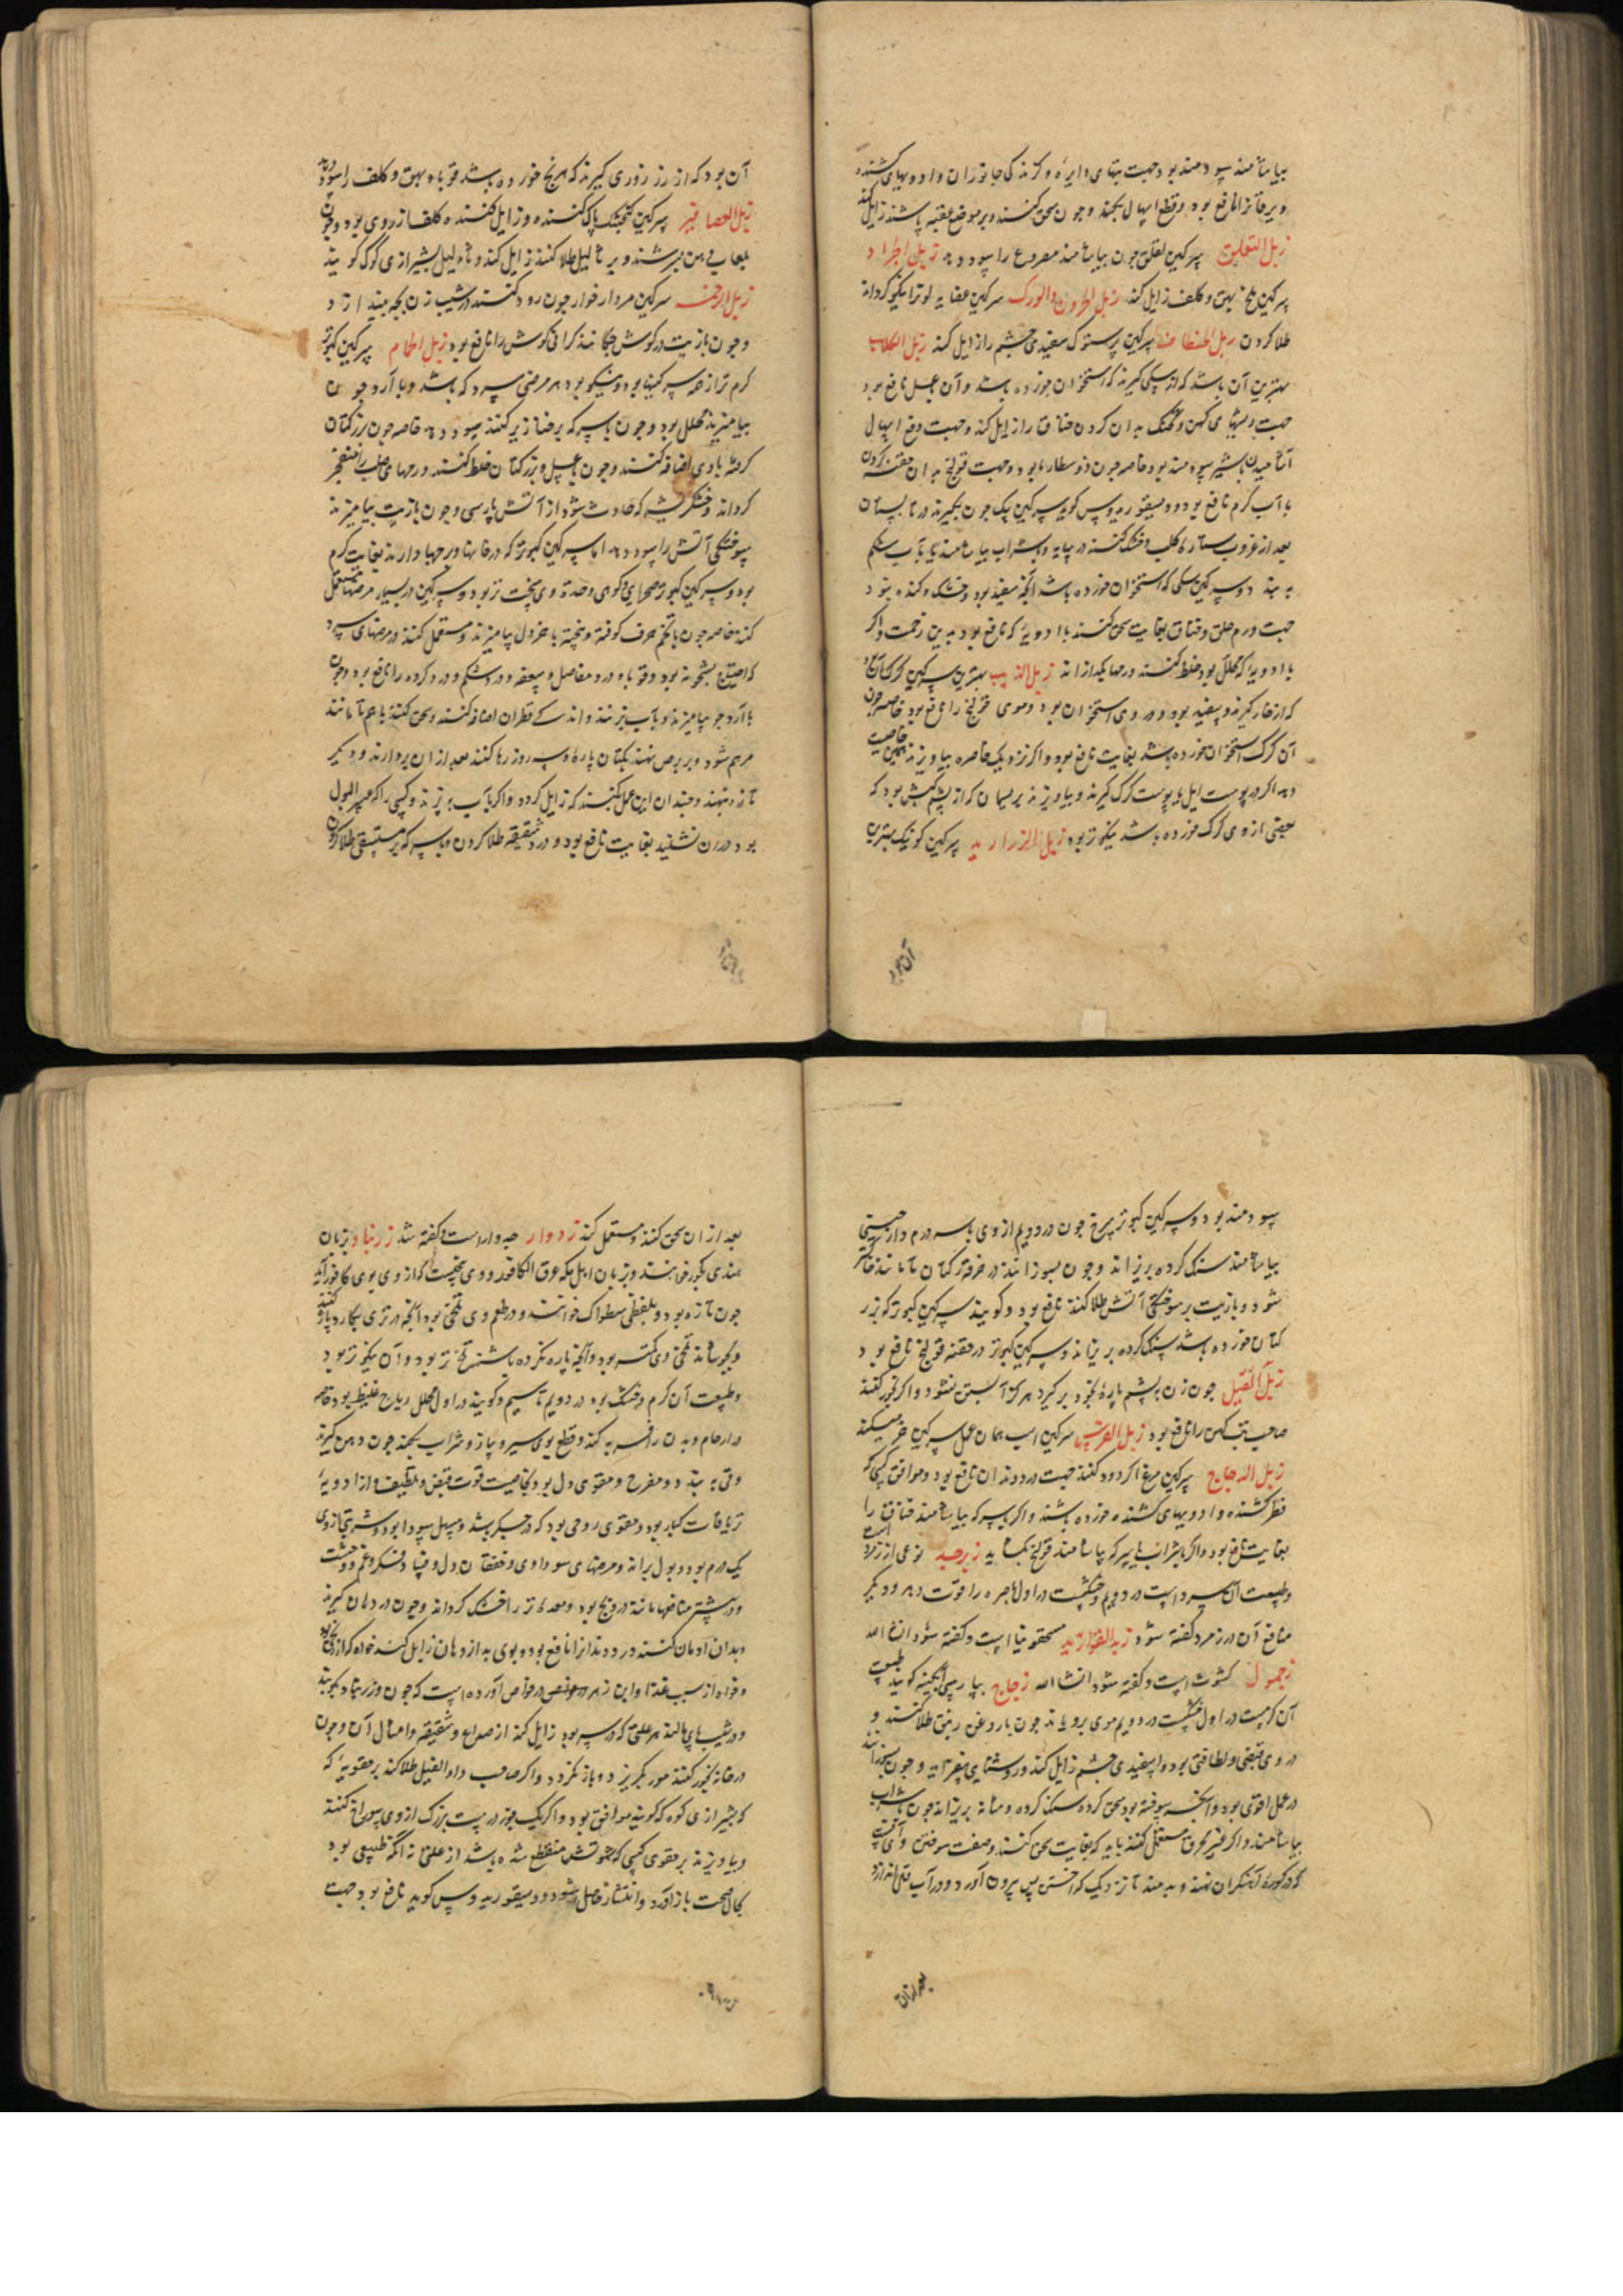 بیاشامند سودمند بود جهت تبهای دایره و کزندکی جانوران و ادویهای کشنده
و یرقانرا نافع بود و قطع اسهال بکند و چون سحق کنند و بر موضع عقبه پاشند زایل کند
زبل التعلیق سرکین لقلق چون بیاشامند مصروع را سود دهد زبل الجراد
سرکین ملخ بهق و کلف زایل کند زبل الحردون والورک سرکین عقایه لونرا نیکو کرداند
طلا کردن زبل الخطاطیف سرکین پرستوک سفیدی چشم را زایل کند زبل الکلاب
بهترین آن باشد که از سکی کیرند که استخوان خورده باشد و آن عسل نافع بود
جهت ریشهای کهن و خناق را زایل کند و جهت دفع اسهال
آشامیدن با شیر سودمند بود خاصه چون ذوسنطاریا بود و جهت قولنج بدان حقنه کردن
با آب کرم نافع بود و دیسقوریدوس کوید سرکین سک چون بکیرند در تابستان
بعد از غروب ستاره کلب و خشک کنند در سایه و با شراب بیاشامند یا با آب شکم
به بندد و سرکین سکی که استخوان خورده باشد آنچه سفید بود و خشک و کنده نبود
جهت ورم حلق و خناق بغایت سحق کنند با ادویهٔ که نافع بود بدین زحمت و اکر
با ادویهٔ که محلل بود خلط کنند ورمها بکدازاند زبل الذیب بهترین سرکین کرک آن
که از خار کیرند و سفید بود و در وی استخوان بود و موی قولنج را نافع بود خاصه چون
آن کرک استخوان خورده باشد بغایت نافع بود و اکر نزدیک خاصره بیاویزند همین خاصیت
دهد اکر در پوست ایل یا پوست کرک کیرند و بیاویزند بریسمان که از پشم کبش بود که
بعضی از وی کرک خورده باشد نیکوتر بود زبل الزرازیر سرکین کوزیک بهترین
آن بود
آن بود که از زرزوری کیرند که برنج خورده باشد قوبا و بهق و کلف را سود دهد
زبل العصافیر سرکین کنجشک پاک کننده و زایل کننده کلف از روی بود و چون
بلعاب دهن بسرشند و بر ثالیل طلا کنند زایل کند و ثالیل بشیرازی کوک کویند
زبل الرخمه سرکین مردار خوار چون دود کنند در شیب زن بچه بیندازد
و چون با زیت در کوش چکانند کرانی کوش را نافع بود زبل الحمام سرکین کبوتر
کرم تر از همه سرکینها بود و نیکو بود هر مرضی سرد که باشد و با آرد جو چون
بیامیزند محلل بود و چون با سرکه بر خنازیر کنند سود دهد خاصه چون بزرکتان
کوفته با وی اضافه کنند و چون با عسل و بزرکتان خلط کنند ورمهای صلب را منفجر
کرداند و خشکریشه که حادث شود از آتش پارسی و چون با زیت بیامیزند
سوختکی آتش را سود دهد اما سرکین کبوتر که در خانها و برجها دارند بغایت کرم
بود و سرکین کبوتر صحرایی و کوهی وحدة وی سخت تر بود و سرکین در بسیار مرضها مستعمل
کنند خاصه چون با تخم حرف کوفته و بیخته با خردل بیامیزند و مستعمل کنند در مرضهای سرد
که احتیاج بتسخونه بود و قوبا و درد مفاصل و سعفه و درد شکم و درد کرده را نافع بود و چون
با آرد جو بیامیزند و با آب بپزند و اندکی قطران اضافه کنند و سحق کنند با هم تا مانند
مرهم شود و بر برص نهند بکتان پاره و سه روز رها کنند بعد از آن بردارند و دیکر
تازه نهند و چندان این عمل بکنند که زایل کردد و اکر با آب بپزند و کسی را که عسر البول
بود در آن نشیند بغایت نافع بود و در شقیقه طلا کردن و با سرکه بر مستسقی طلا کردن
سودمند بود و سرکین کبوتر سرخ چون دو درم از وی با سه درم دارچینی
بیاشامند سنک کرده بریزاند و چون بسوزانند در خرقه کتان تا مانند خاکستر
شود و با زیت بر سوختکی آتش طلا کنند نافع بود و کویند سرکین کبوتر که بزر
کتان خورده باشد سنک کرده بریزاند و سرکین کبوتر در حقنه قولنج نافع بود
زبل الفیل چون زن بپشم پاره بخود برکیرد هرکز آبستن نشود و اکر بخور کنند
صاحب تب کهن را نافع بود زبل الفرس سرکین اسب همان عمل سرکین خر میکند
زبل الدجاج سرکین مرغ اکر دود کنند جهت درد دندان نافع بود و موافق کسی که
فطر کشنده و ادویهای کشنده خورده باشند و اکر با سرکه بیاشامند خناق را
بغایت نافع بود و اکر با شراب یا سرکه بیاشامند قولنج بکشاید زبرجد نوعی از زمرد است
و طبیعت آن سرد است در دویم و خشکست در اول باصره را قوت دهد و دیکر
منافع آن در زمرد کفته شود زبد القواریر مسحقونیا است و کفته شود ان شاء الله
زجمول کشوث است و کفته شود انشا الله زجاج بپارسی آبکینه کویند طبیعت
آن کرمست در اول خشکست در دویم موی برویاند چون با روغن زنبق طلا کنند و
در وی قبضی و لطافتی بود و سفیدی چشم زایل کند و روشنایی بیفزاید و چون بسوزانند
در عمل اقوی بود و آنچه سوخته بود سحق کرده سنک کرده و مثانه بریزاند چون با شراب
بیاشامند و اکر غیر محرق مستعمل کنند باید که بغایت سحق کنند و صفت سوختن وی آنست
که در کوره آهنکران نهند و بدمند تا نزدیک کداختن پس بیرون آورد و در آب قلی اندازد
بعد از آن
بعد از آن سحق کنند و مستعمل کنند زدوار جدوار است و کفته شد زرنباد بزبان
هندی کجور خوانند و بزبان اهل مکه عرق الکافور و وی بیخیست که از وی بوی کافور آید
چون تازه بود و بلفظی سطوال خوانند و در طعم وی تلخی بود آنچه در تری بکارد پاره کنند
و بجوشانند تلخی وی کمتر بود و آنچه پاره نکرده باشند تلخ تر بود و آن نیکوتر بود
و طبیعت آن کرم و خشک بود در دویم تا سیم و کویند در اول محلل ریاح غلیظ بود خاصه
در ارحام و بدن را فربه کند و قطع بوی سیر و پیاز و شراب بکند چون در دهن کیرند
و قی به بندد و مفرح و مقوی دل بود بخاصیت قوت قبض و تلطیف و از ادویهٔ
تریاقات کبار بود و مقوی روحی بود که در جکر باشد و مسهل سودا بود و شربتی از وی
یک درم بود و بول براند و مرضهای سوداوی و خفقان دل و فساد فکر و غم و وحشت
و بیشتر منافع مانند درونج بود و معده تر را خشک کرداند و چون در دهان کیرند
و بدان ادمان کنند درد دندانرا نافع بود و بوی بد از دهان زایل کند خواه که از بیخ
و خواه از سبب غذا و ابن زهر در خواص آورده است که چون زرنباد بکوبند
و در شیب پای مالند هر علتی که در سر بود زایل کند از صداع و شقیقه و امثال آن و چون
در خانه بخور کنند مور بکریزد و باز نکردد و اکر صاحب داء الفیل طلا کند بر عقوبهٔ که
بشیرازی کوه کویند موافق بود و اکر یک جوز درست بزرک از وی سوراخ کنند
و بیاویزند بر حقوی کسی که شهوتش منقطع شده باشد از علتی نه آنکه طبیعی بود
بحال صحت باز آورد و انتشار حاصل شود و دیسقوریدوس کوید نافع بود جهت